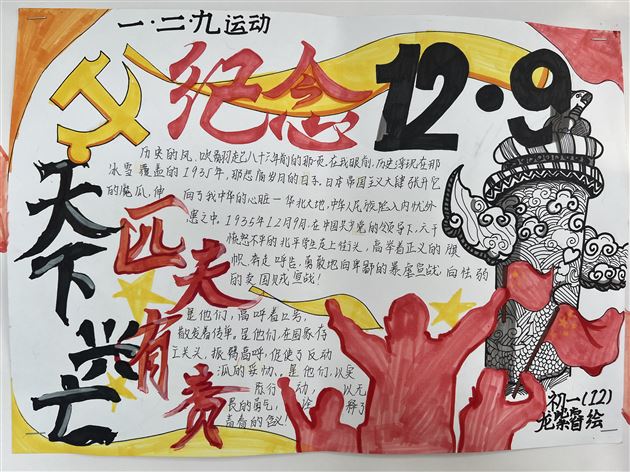 一·二·九运动
纪念12·9
天下兴亡
匹夫有责
历史的风,吹
八十六年前的那页,在我眼前,历史浮现在那
冰雪覆盖的1935年,那悲痛岁月的日子。日本帝国主义大肆张开它
的魔爪,伸向了我中华的心脏—华北大地,中华人民陷入内忧外
患之中。1935年12月9日,在中国共产党的领导下,六千
愤怒不平的北平学生走上街头,高举着正义的旗
帜,奔走呼告,勇敢地向卑鄙的暴虐宣战,向怯弱
的卖国贼宣战!
是他们,高呼着口号,
散发着传单。是他们,在国家存
亡关头,振臂高呼,促使了反动
派的妥协。是他们,以实
际行动,以无
畏的勇气,诠释了
青春的含义!
初一(12)
龙紫睿绘